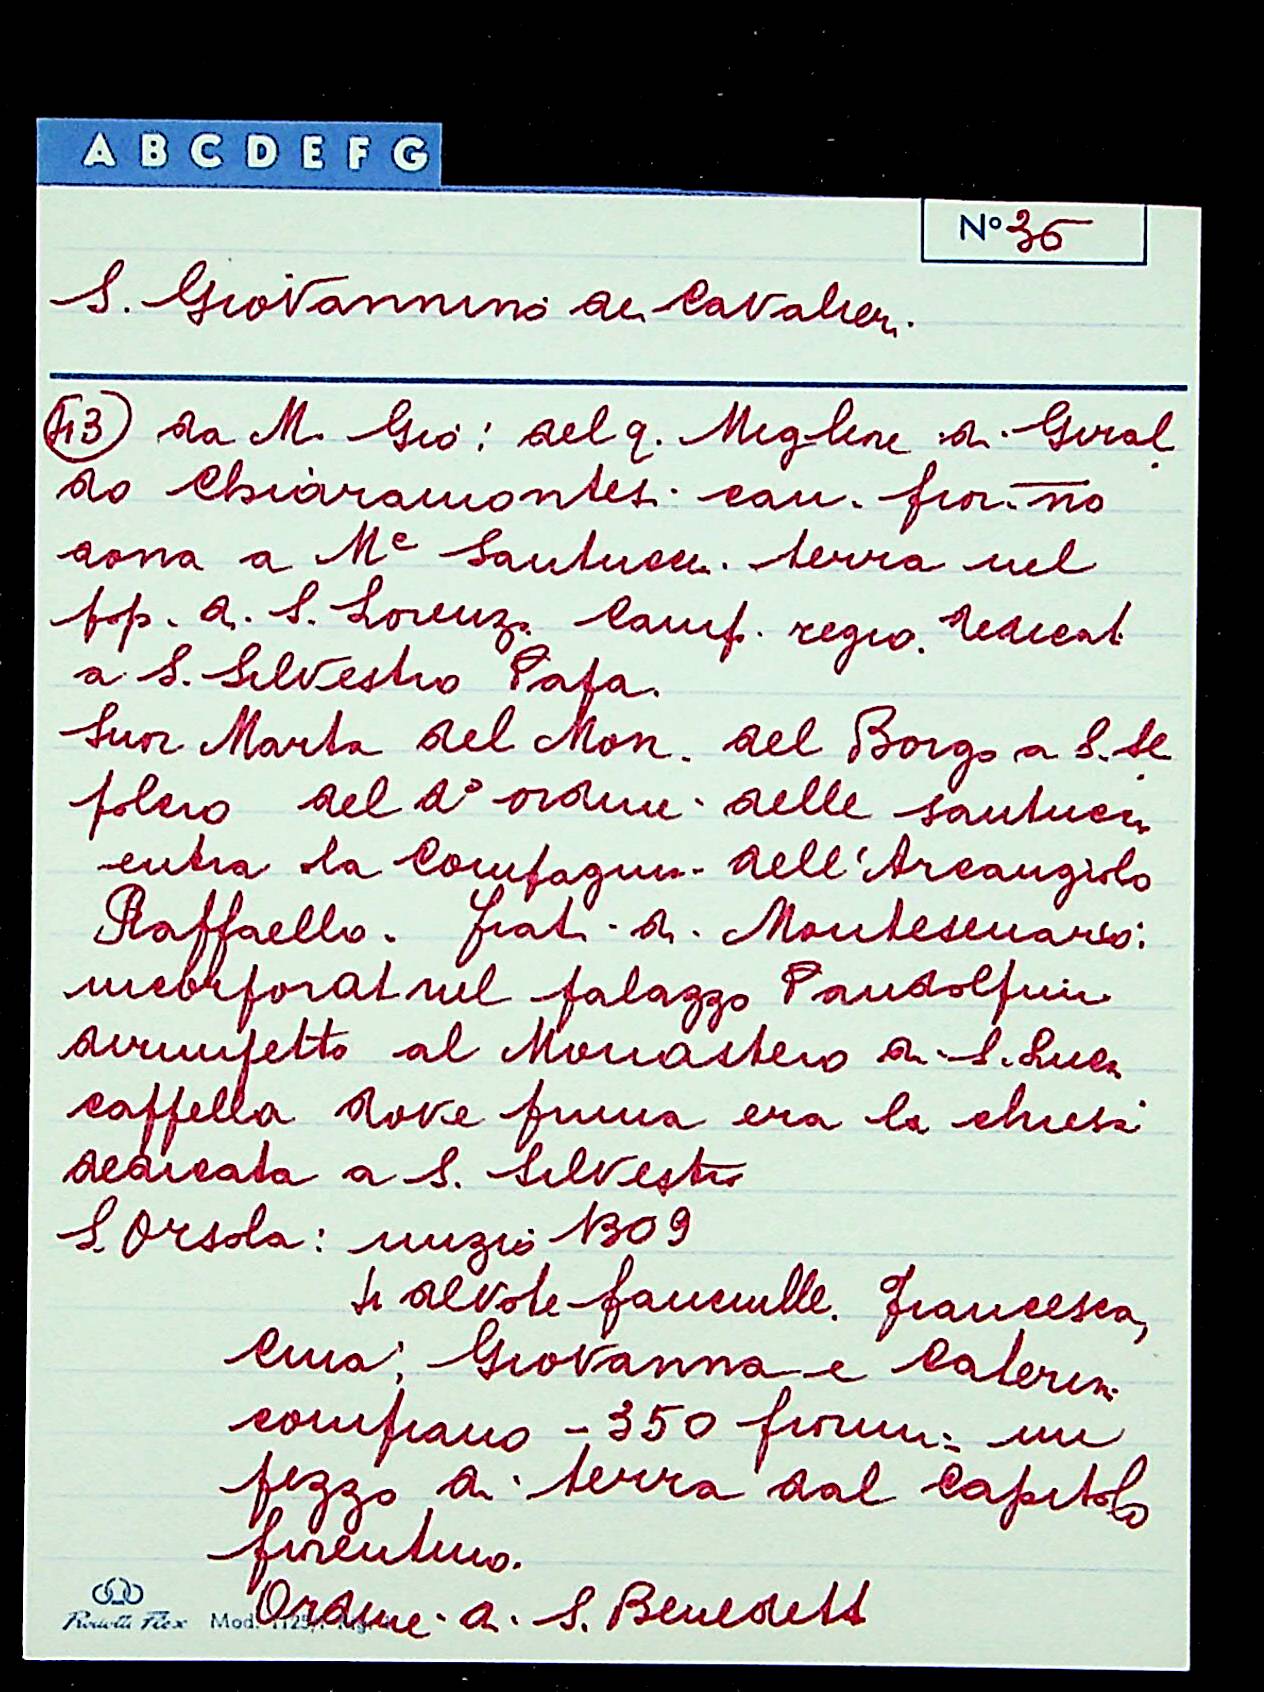 A B C D E F G
Nº 36
S. Giovannino dei Cavalieri.
43 da M. Gio: del q. Migliore di Giral
do Chiaramontesi. can. fior.no
dona a Me Santucci. terra nel
pop. di S. Lorenzo Camp. regio. dedicat
a S. Silvestro Papa.
Suor Marta del Mon. del Borgo a S. Se
polcro del dº ordine delle santucci
entra la Compagnia dell'Arcangiolo
Raffaello. frati di Montesenario:
incorporat nel palazzo Pandolfini
dirimpetto al Monastero di S. Luca
cappella dove prima era la chiesa
dedicata a S. Silvestro
S. Orsola: inizio 1309
4 devote fanciulle. Francesca,
Cina; Giovanna e Caterina
comprano - 350 fiorini = un
pezzo di terra dal capitolo
fiorentino.
Ordine di S. Benedett
Mod. 1125/